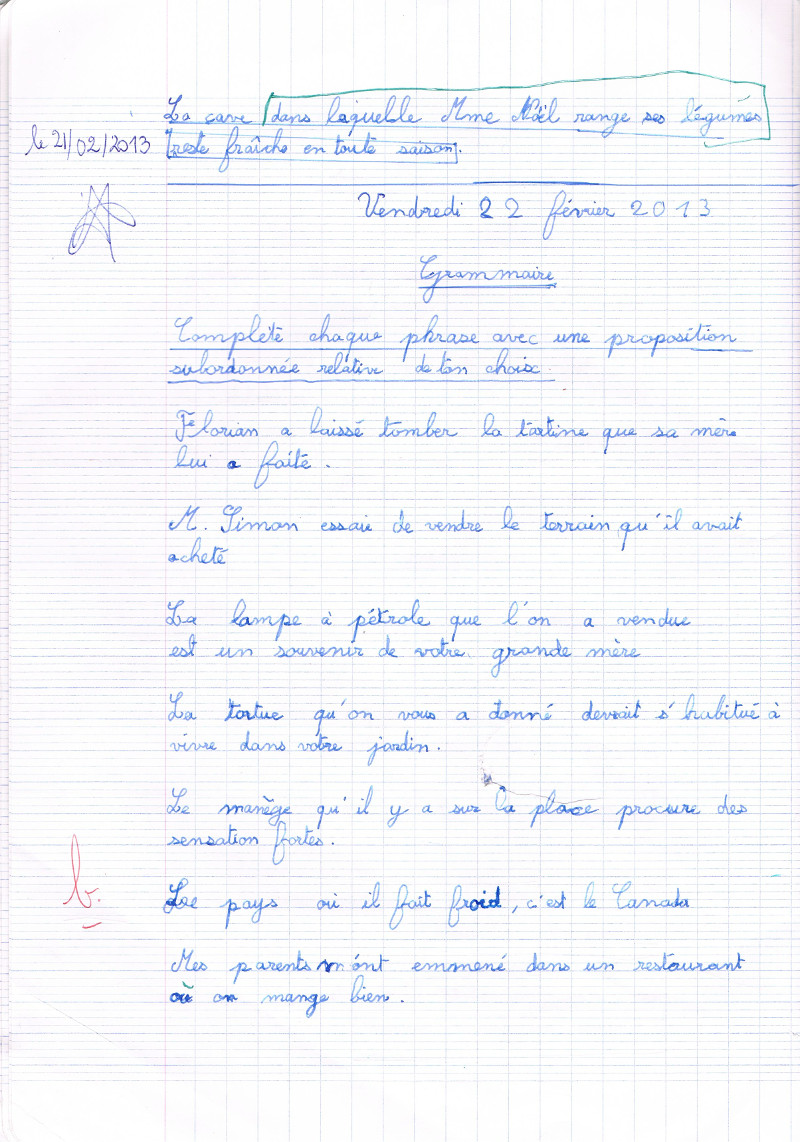 La cave dans laquelle Mme Noël range ses légumes
le 21/02/2013 reste fraîche en toute saison.
Vendredi 22 février 2013
Grammaire
Complété chaque phrase avec une proposition
subordonnée relative de ton choix.
Florian a laissé tomber la tartine que sa mère
lui a faite.
M. Simon essaie de vendre le terrain qu'il avait
acheté
La lampe à pétrole que l'on a vendue
est un souvenir de votre grande mère
La tortue qu'on vous a donné devrait s'habitué à
vivre dans votre jardin.
Le manège qu'il y a sur la place procure des
sensation fortes.
b.
Le pays où il fait froid, c'est le Canada
Mes parents m'ont emmené dans un restaurant
où on mange bien.